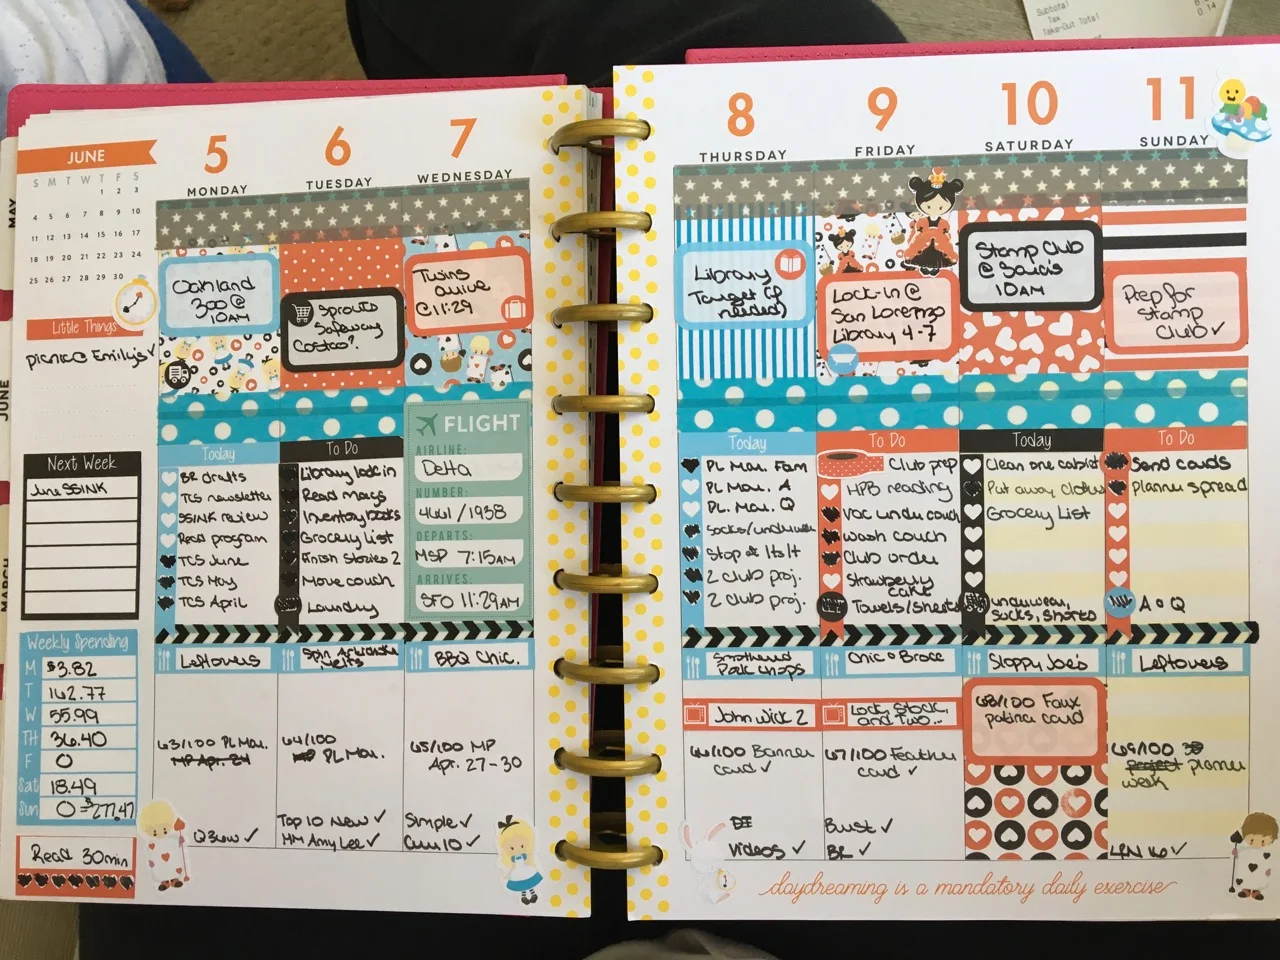 Subtotal
Tax
Take-Out Total
0.14
MAY
JUNE
MARCH
JUNE
S M T W T F S
1 2 3
4 5 6 7 8 9 10
11 12 13 14 15 16 17
18 19 20 21 22 23 24
25 26 27 28 29 30
Little Things
picnic @ Emily's ✓
Next Week
June SSINK
Weekly Spending
M $3.82
T 162.77
W 55.99
TH 36.40
F 0
Sat 18.49
Sun 0 = $277.47
Read 30min
5
MONDAY
Oakland
Zoo @
10AM
Today
BR drafts
TCS newsletter
SSINK review
Read program
TCS June
TCS May
TCS April
Leftovers
63/100 PL Mar.
MP Apr. 24
✓
6
TUESDAY
Sprouts
Safeway
Costco?
To Do
Library lock in
Read mags
Inventory books
Grocery List
Finish Stories 2
Move couch
Laundry
Spin Artichoke
Melts
64/100
PL Mar.
Top 10 New ✓
MM Amy Lee ✓
7
WEDNESDAY
Twins
arrive
@ 11:29
FLIGHT
AIRLINE:
Delta
NUMBER:
4441/1938
DEPARTS:
MSP 7:15AM
ARRIVES:
SFO 11:29AM
BBQ Chic.
65/100 MP
Apr. 27-30
Simple ✓
✓
8
THURSDAY
Library
Target (if
needed)
Today
PL Mar. Fam
PL Mar. A
PL Mar. Q
socks/underwear
Stop & Let It
2 club proj.
2 club proj.
Smothered
Pork Chops
John Wick 2
66/100 Banner
card ✓
Videos ✓
9
FRIDAY
Lock-in @
San Lorenzo
Library 4-7
To Do
Club prep
HPB reading
vac under couch
wash couch
Club order
Strawberry
cake
Towels/Sheets
Chic & Brocc
Lock, Stock,
and Two...
67/100 Feather
card ✓
Bust ✓
BR ✓
10
SATURDAY
Stamp Club
@
10AM
Today
Clean one cabinet
Put away clothes
Grocery List
underwear,
socks, shorts
Sloppy Joe's
68/100 Faux
patina card
11
SUNDAY
Prep for
Stamp
Club ✓
To Do
Send cards
Planner spread
A & Q
Leftovers
69/100
project planner
week
✓
daydreaming is a mandatory daily exercise